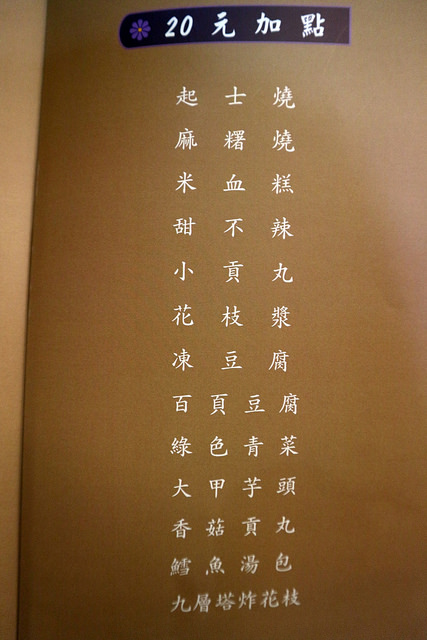 20元加點
起士燒
麻糬燒
米血糕
甜不辣
小貢丸
花枝漿
凍豆腐
百頁豆腐
綠色青菜
大甲芋頭
香菇貢丸
鱈魚湯包
九層塔炸花枝